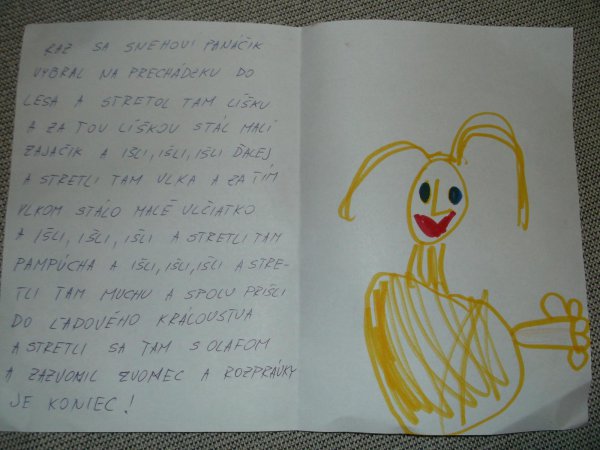 RAZ SA SNEHOVÍ PANÁČIK
VYBRAL NA PRECHÁDZKU DO
LESA A STRETOL TAM LÍŠKU
A ZA TOU LÍŠKOU STÁL MALÍ
ZAJAČIK A IŠLI, IŠLI, IŠLI ĎALEJ
A STRETLI TAM VLKA A ZA TÍM
VLKOM STÁLO MALÉ VLČIATKO
A IŠLI, IŠLI, IŠLI A STRETLI TAM
PAMPÚCHA A IŠLI, IŠLI, IŠLI A STRE-
TLI TAM MUCHU A SPOLU PRIŠLI
DO ĽADOVÉHO KRÁĽOVSTVA
A STRETLI SA TAM S OLAFOM
A ZAZVONIL ZVONEC A ROZPRÁVKY
JE KONIEC!